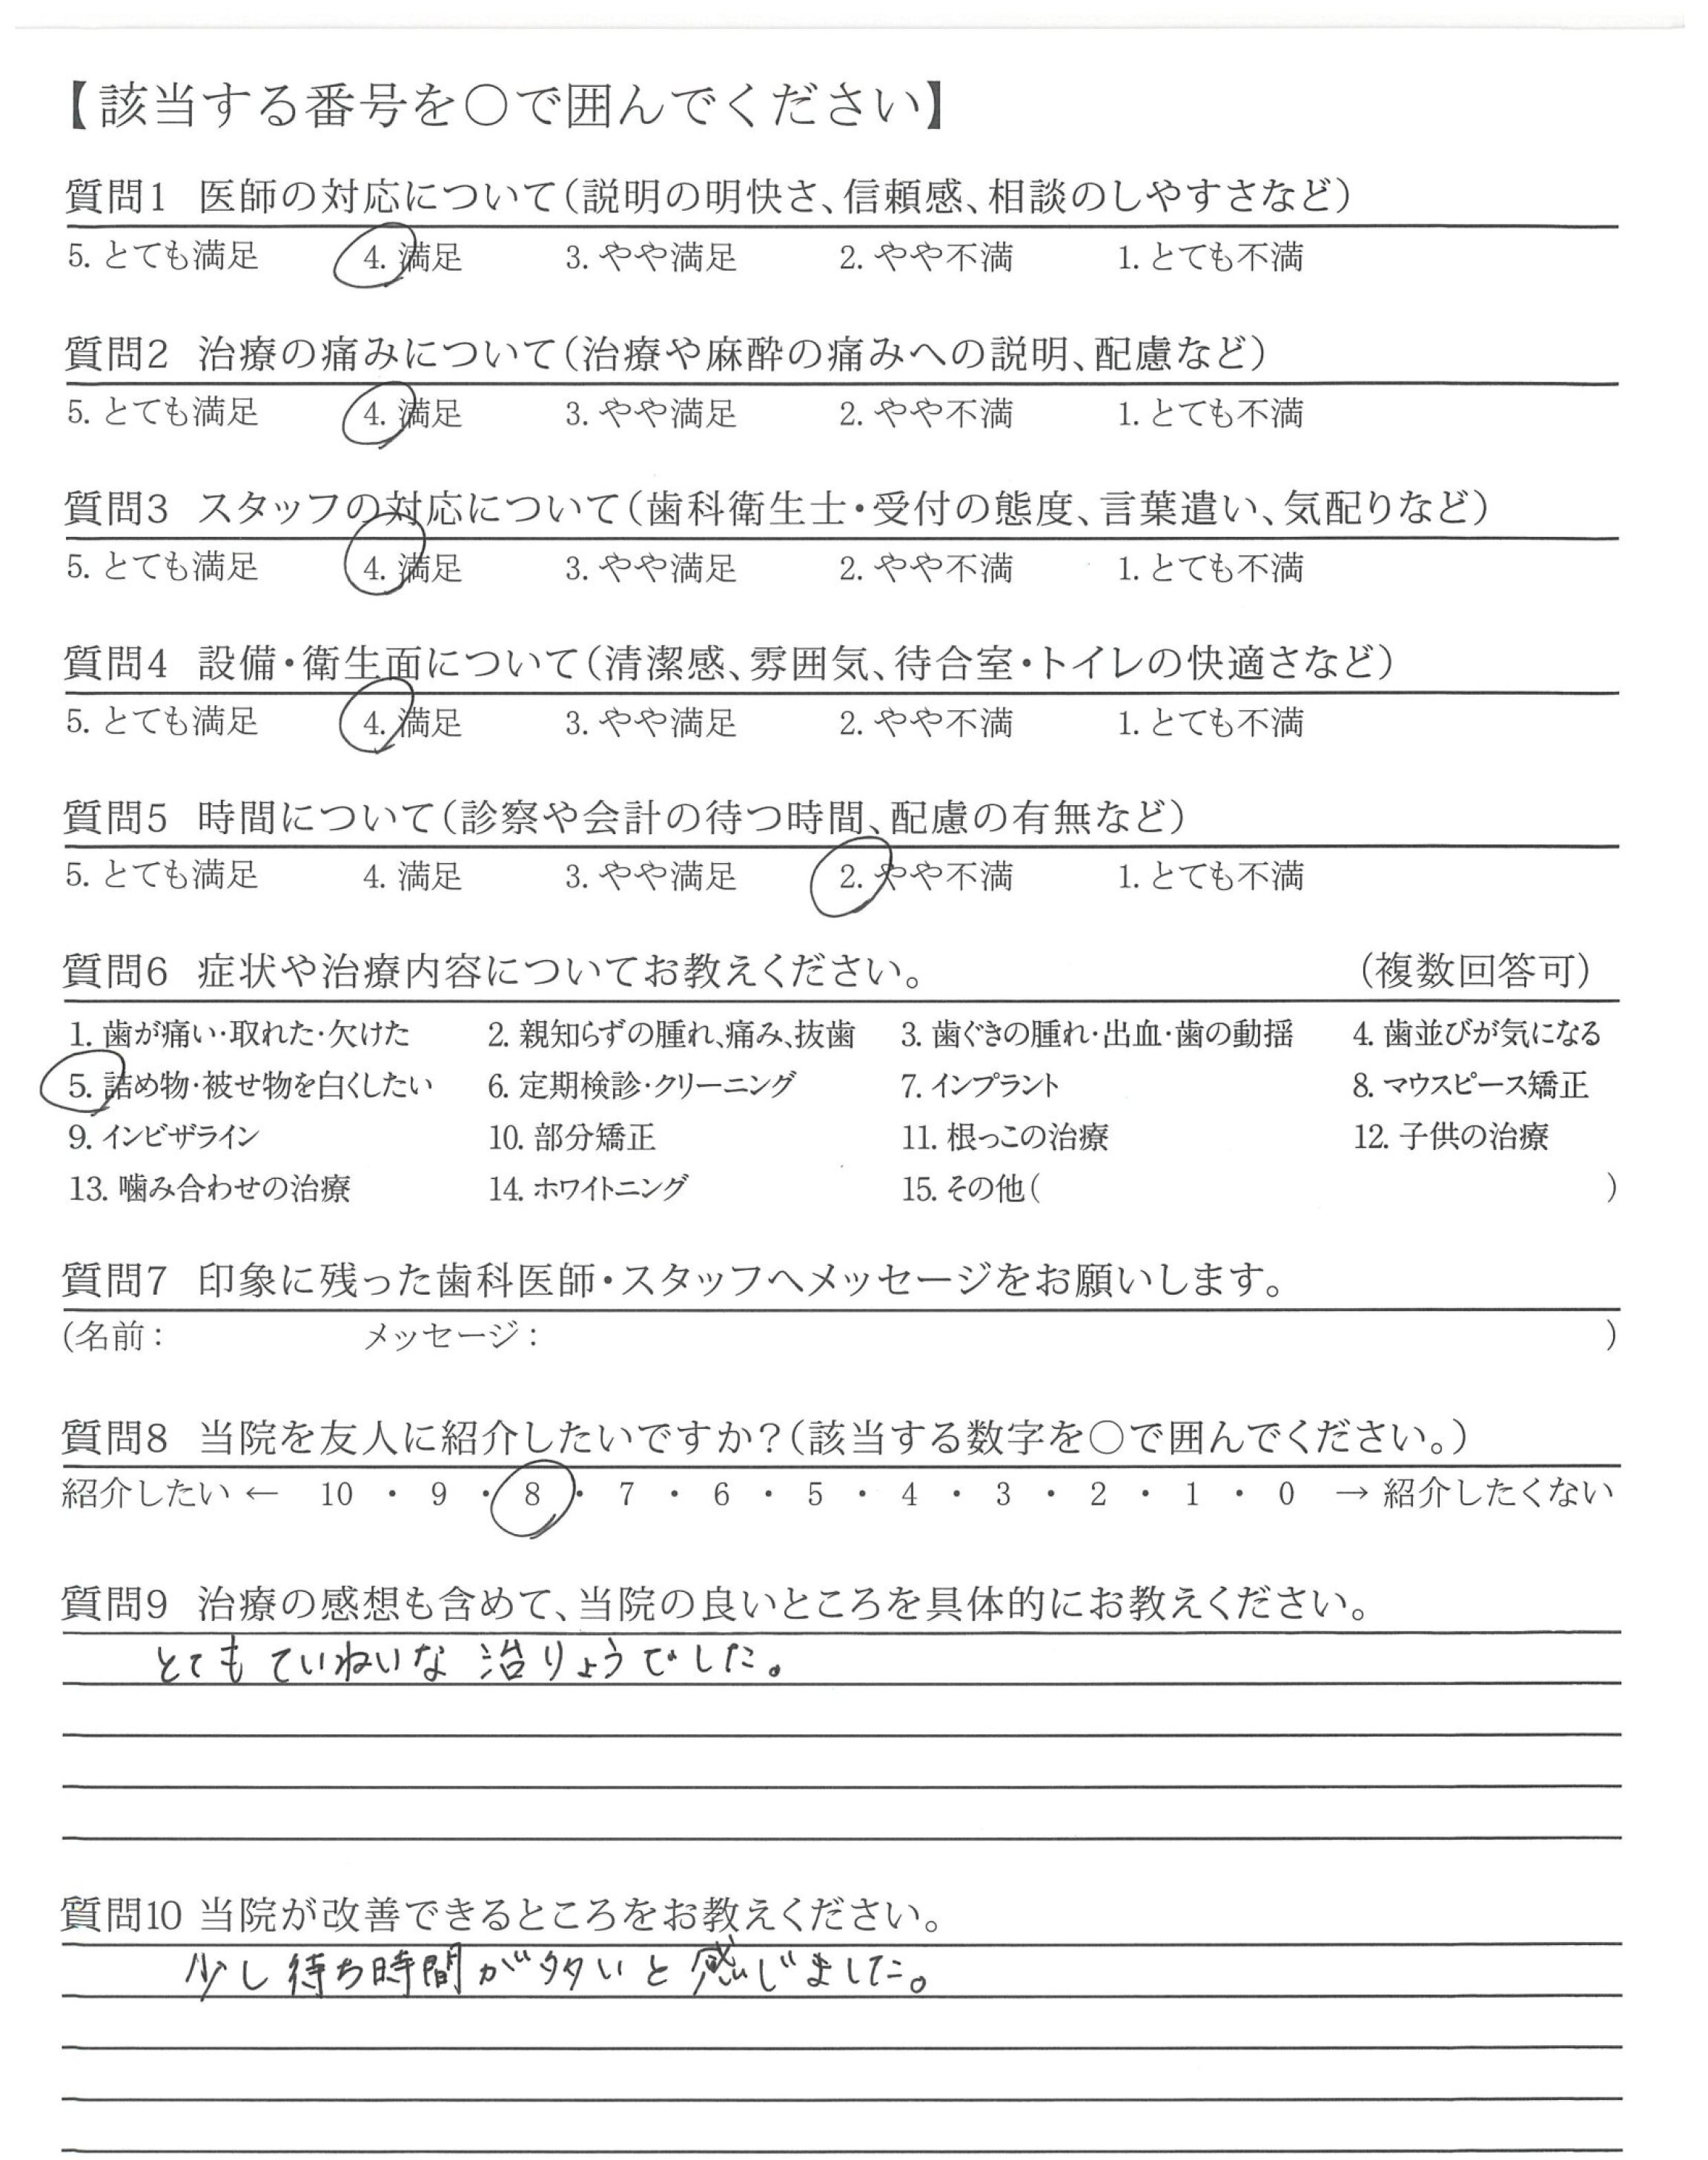 【該当する番号を○で囲んでください】
質問1 医師の対応について(説明の明快さ、信頼感、相談のしやすさなど)
5. とても満足 4. 満足 3. やや満足 2. やや不満 1. とても不満
質問2 治療の痛みについて(治療や麻酔の痛みへの説明、配慮など)
5. とても満足 4. 満足 3. やや満足 2. やや不満 1. とても不満
質問3 スタッフの対応について(歯科衛生士・受付の態度、言葉遣い、気配りなど)
5. とても満足 4. 満足 3. やや満足 2. やや不満 1. とても不満
質問4 設備・衛生面について(清潔感、雰囲気、待合室・トイレの快適さなど)
5. とても満足 4. 満足 3. やや満足 2. やや不満 1. とても不満
質問5 時間について(診察や会計の待つ時間、配慮の有無など)
5. とても満足 4. 満足 3. やや満足 2. やや不満 1. とても不満
質問6 症状や治療内容についてお教えください。 (複数回答可)
1. 歯が痛い・取れた・欠けた 2. 親知らずの腫れ、痛み、抜歯 3. 歯ぐきの腫れ・出血・歯の動揺 4. 歯並びが気になる
5. 詰め物・被せ物を白くしたい 6. 定期検診・クリーニング 7. インプラント 8. マウスピース矯正
9. インビザライン 10. 部分矯正 11. 根っこの治療 12. 子供の治療
13. 噛み合わせの治療 14. ホワイトニング 15. その他( )
質問7 印象に残った歯科医師・スタッフへメッセージをお願いします。
(名前: メッセージ: )
質問8 当院を友人に紹介したいですか?(該当する数字を○で囲んでください。)
紹介したい ← 10 ・ 9 ・ 8 ・ 7 ・ 6 ・ 5 ・ 4 ・ 3 ・ 2 ・ 1 ・ 0 → 紹介したくない
質問9 治療の感想も含めて、当院の良いところを具体的にお教えください。
とてもていねいな治りょうでした。
質問10 当院が改善できるところをお教えください。
少し待ち時間が多いと感じました。